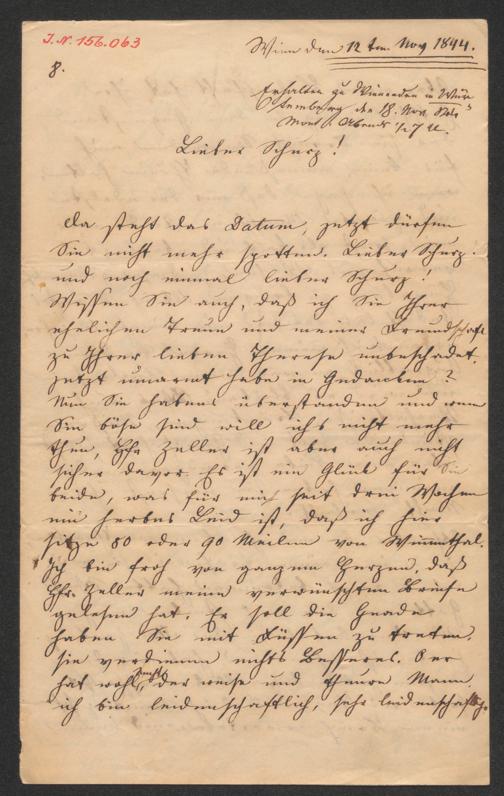 J.N. 156.063
Wien den 12 ten Nov 1844.
8.
Erhalten zu Winnenden in Würt
temberg den 18. Nov.
Mont. Abends 1/2 7 U.
Lieber Schurz!
Da steht das Datum, jetzt dürfen
Sie nicht mehr spotten. Lieber Schurz!
und noch einmal lieber Schurz!
Wissen Sie auch, daß ich Sie Ihrer
ehelichen Treue und meiner Freundschaft
zu Ihrer lieben Therese unbeschadet,
jetzt umarmt habe in Gedanken?
Nun Sie habens überstanden und wenn
Sie böse sind will ichs nicht mehr
thun, Hfr. Zeller ist aber auch nicht
sicher davor. Es ist ein Glück für Sie
beide, was für mich seit drei Wochen
ein herbes Leid ist, daß ich hier
sitze 80 oder 90 Meilen von Winnenthal.
Ich bin froh von ganzem Herzen, daß
Hfr. Zeller meine verwünschten Briefe
gelesen hat. Er soll die Gnade
haben Sie mit Füssen zu treten,
sie verdienen nichts Besseres. O er
hat wohl recht, der weise und theure Mann,
ich bin leidenschaftlich, sehr leidenschaftlich.